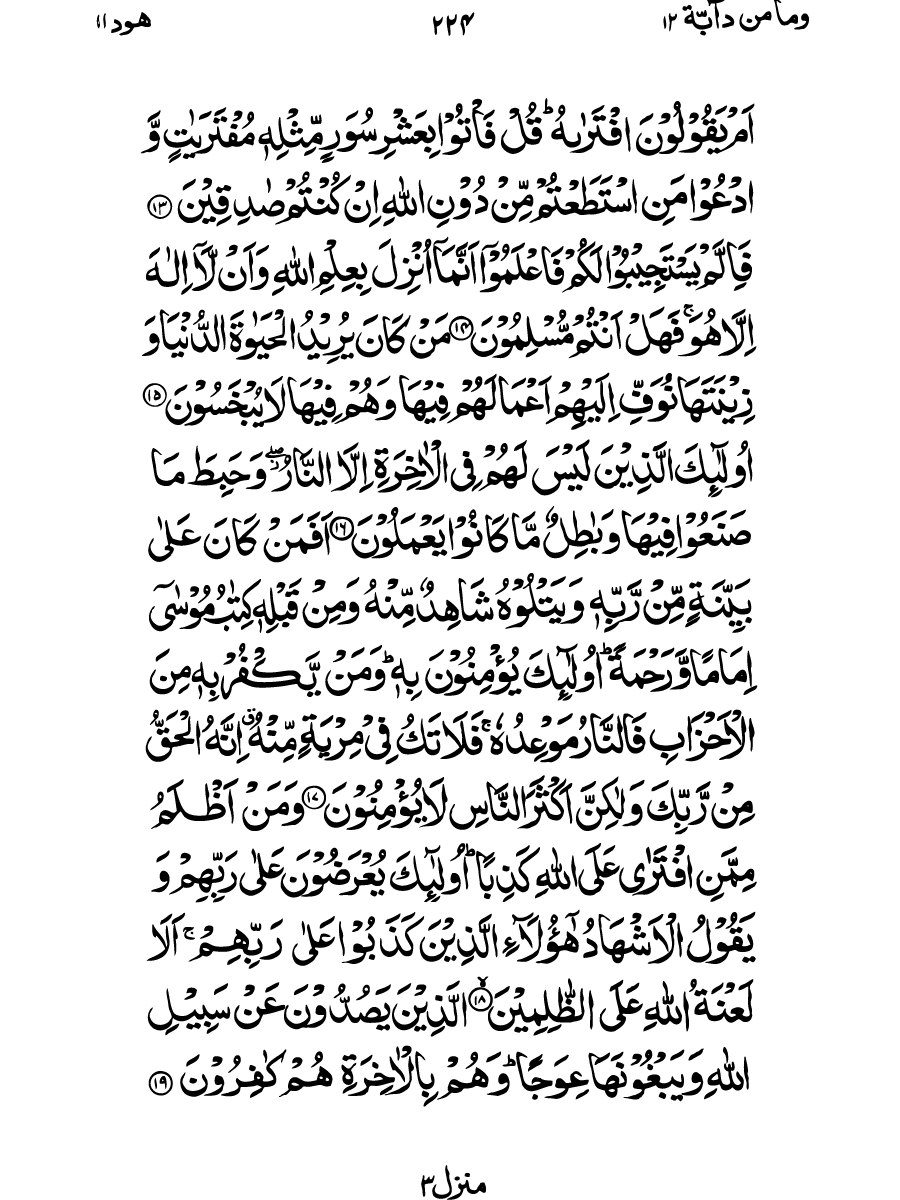 وما من دآبّة ١٢
٢٢٤
هود ١١
اَمْ يَقُوْلُوْنَ افْتَرٰىهُ ؕ قُلْ فَاْتُوْا بِعَشْرِ سُوَرٍ مِّثْلِهٖ مُفْتَرَيٰتٍ وَّ
ادْعُوْا مَنِ اسْتَطَعْتُمْ مِّنْ دُوْنِ اللّٰهِ اِنْ كُنْتُمْ صٰدِقِيْنَ ﴿۱۳﴾
فَاِلَّمْ يَسْتَجِيْبُوْا لَكُمْ فَاعْلَمُوْۤا اَنَّمَاۤ اُنْزِلَ بِعِلْمِ اللّٰهِ وَاَنْ لَّاۤ اِلٰهَ
اِلَّا هُوَ ۚ فَهَلْ اَنْتُمْ مُّسْلِمُوْنَ ﴿۱۴﴾ مَنْ كَانَ يُرِيْدُ الْحَيٰوةَ الدُّنْيَا وَ
زِيْنَتَهَا نُوَفِّ اِلَيْهِمْ اَعْمَالَهُمْ فِيْهَا وَهُمْ فِيْهَا لَا يُبْخَسُوْنَ ﴿۱۵﴾
اُولٰٓئِكَ الَّذِيْنَ لَيْسَ لَهُمْ فِى الْاٰخِرَةِ اِلَّا النَّارُ ۖ وَحَبِطَ مَا
صَنَعُوْا فِيْهَا وَبٰطِلٌ مَّا كَانُوْا يَعْمَلُوْنَ ﴿۱۶﴾ اَفَمَنْ كَانَ عَلٰى
بَيِّنَةٍ مِّنْ رَّبِّهٖ وَيَتْلُوْهُ شَاهِدٌ مِّنْهُ وَمِنْ قَبْلِهٖ كِتٰبُ مُوْسٰٓى
اِمَامًا وَّرَحْمَةً ؕ اُولٰٓئِكَ يُؤْمِنُوْنَ بِهٖ ؕ وَمَنْ يَّكْفُرْ بِهٖ مِنَ
الْاَحْزَابِ فَالنَّارُ مَوْعِدُهٗ ۚ فَلَا تَكُ فِىْ مِرْيَةٍ مِّنْهُ ۗ اِنَّهُ الْحَقُّ
مِنْ رَّبِّكَ وَلٰكِنَّ اَكْثَرَ النَّاسِ لَا يُؤْمِنُوْنَ ﴿۱۷﴾ وَمَنْ اَظْلَمُ
مِمَّنِ افْتَرٰى عَلَى اللّٰهِ كَذِبًا ؕ اُولٰٓئِكَ يُعْرَضُوْنَ عَلٰى رَبِّهِمْ وَ
يَقُوْلُ الْاَشْهَادُ هٰٓؤُلَآءِ الَّذِيْنَ كَذَبُوْا عَلٰى رَبِّهِمْ ۚ اَلَا
لَعْنَةُ اللّٰهِ عَلَى الظّٰلِمِيْنَ ﴿۱۸﴾ الَّذِيْنَ يَصُدُّوْنَ عَنْ سَبِيْلِ
اللّٰهِ وَيَبْغُوْنَهَا عِوَجًا ؕ وَهُمْ بِالْاٰخِرَةِ هُمْ كٰفِرُوْنَ ﴿۱۹﴾
منزل ٣